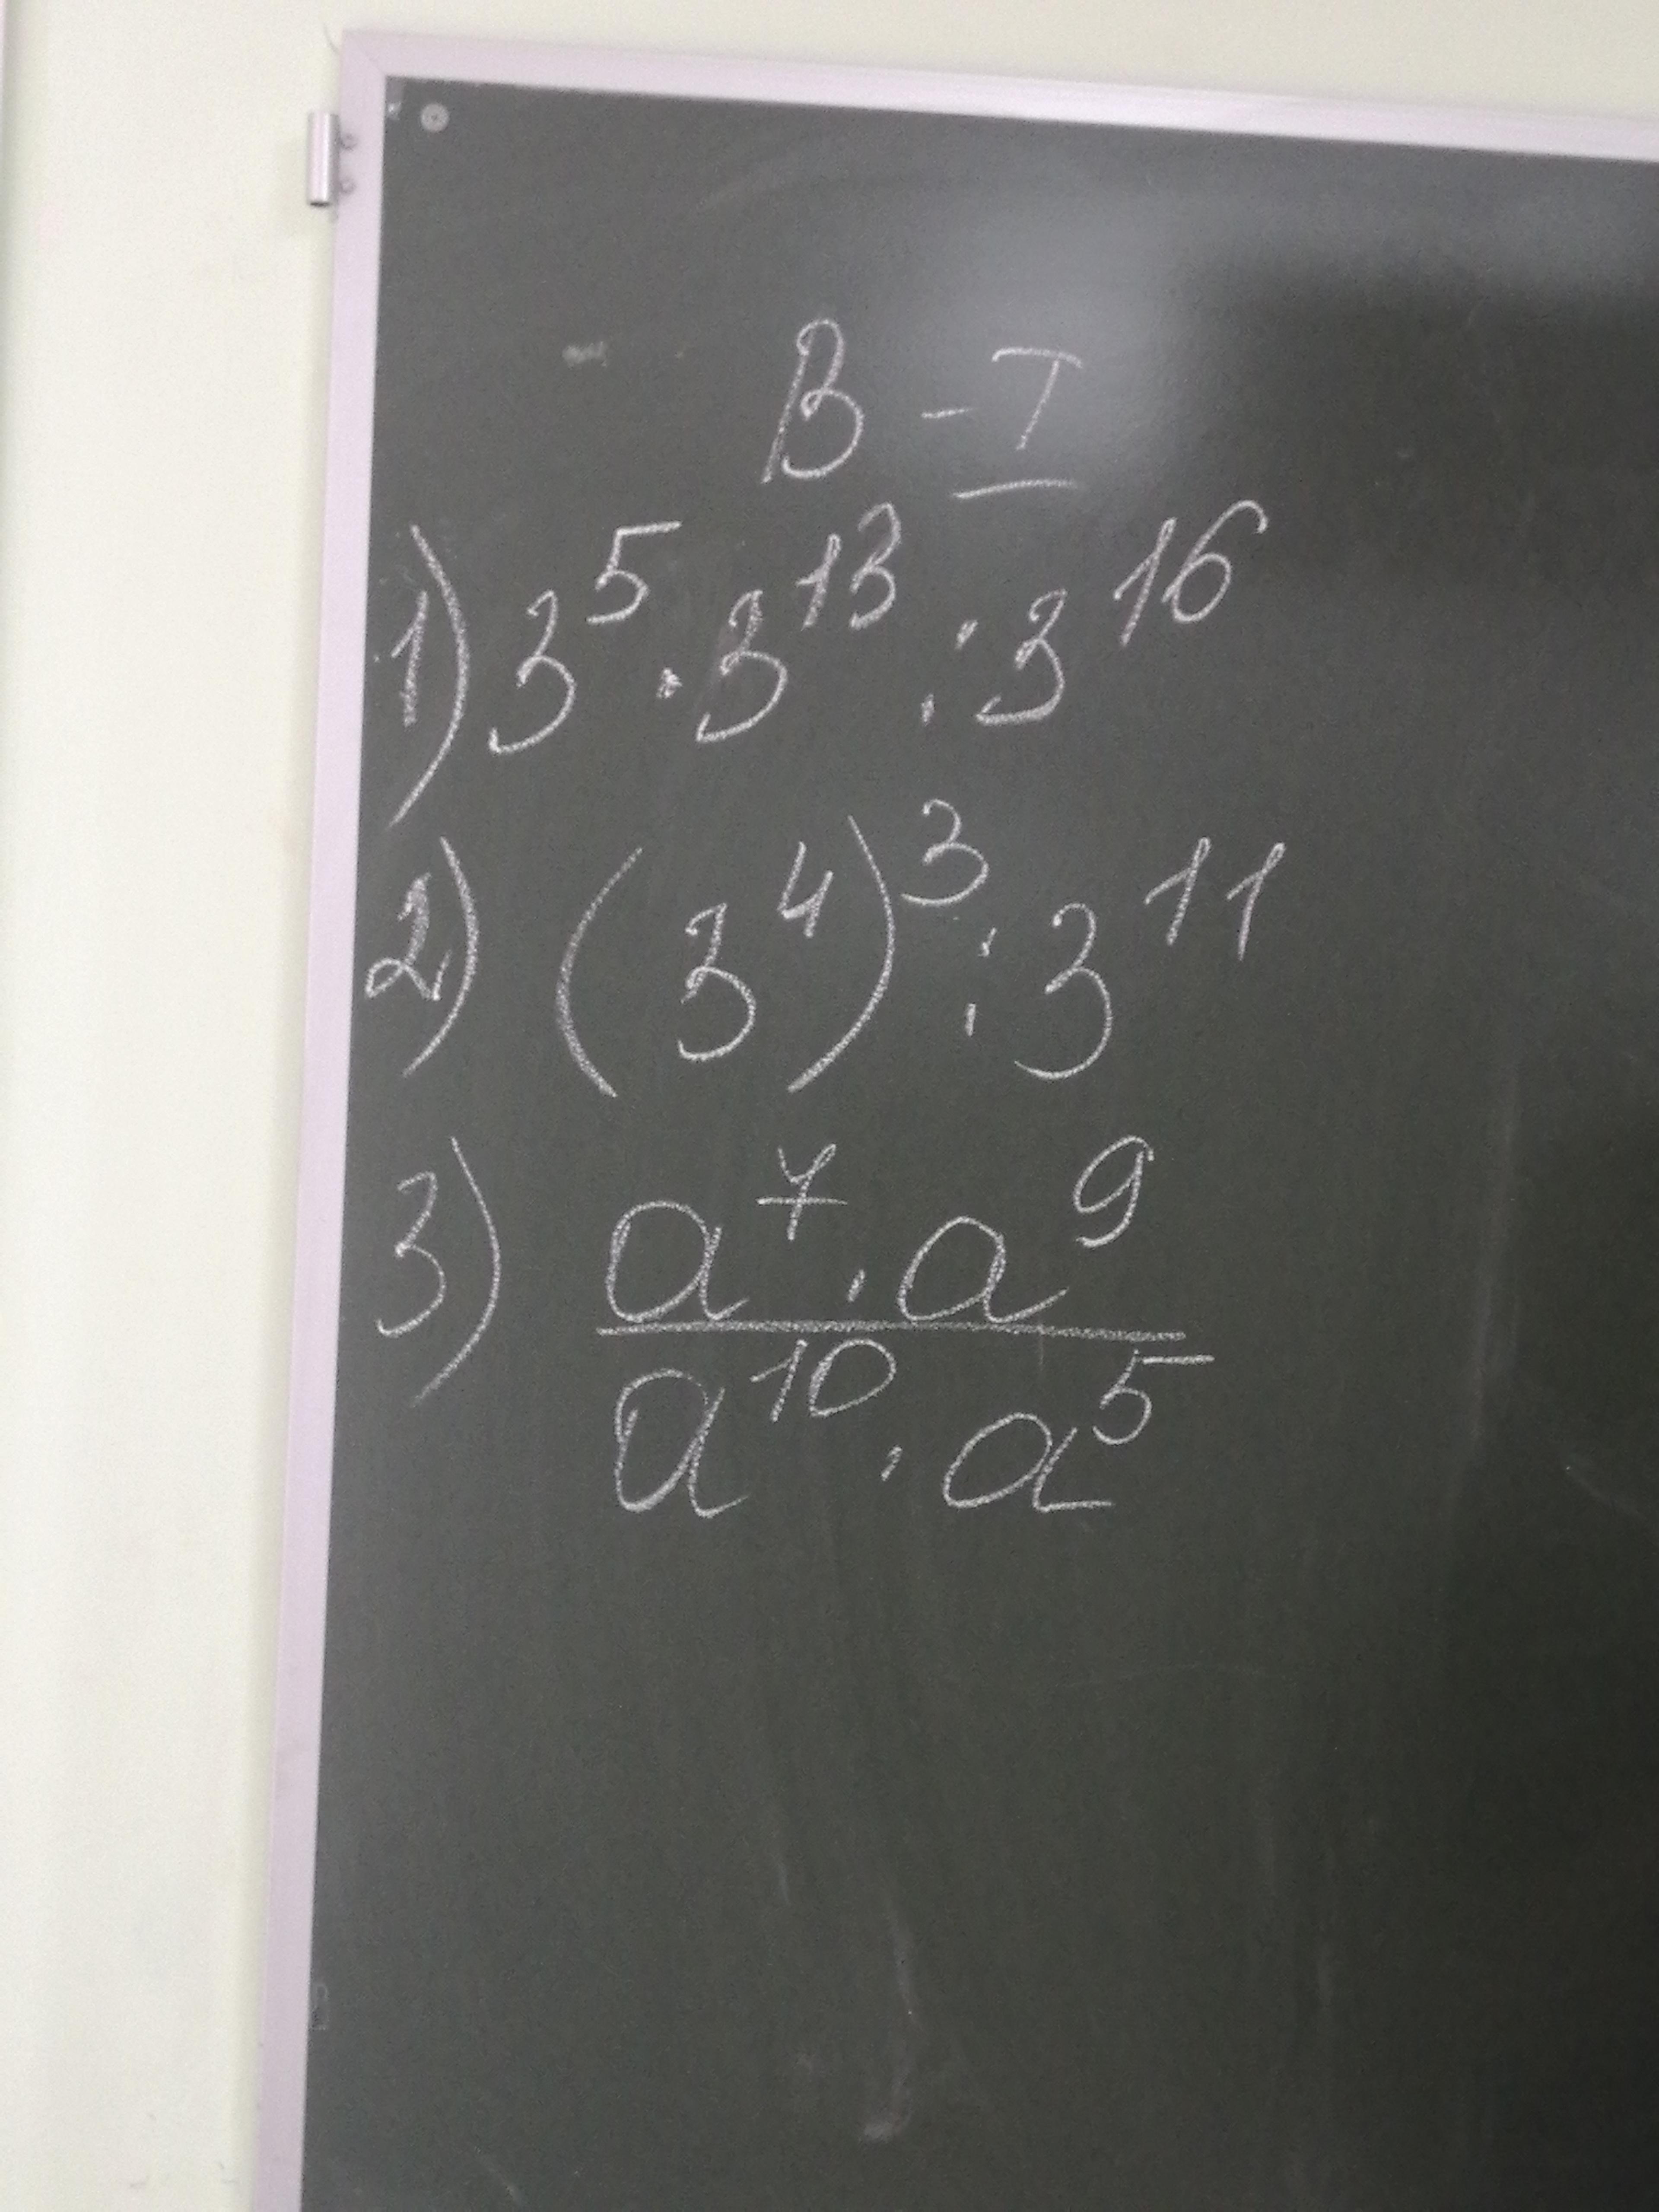 В - I
1) 3⁵ · 3¹³ : 3¹⁶
2) (3⁴)³ : 3¹¹
3) a⁷ · a⁹
a¹⁰ · a⁵